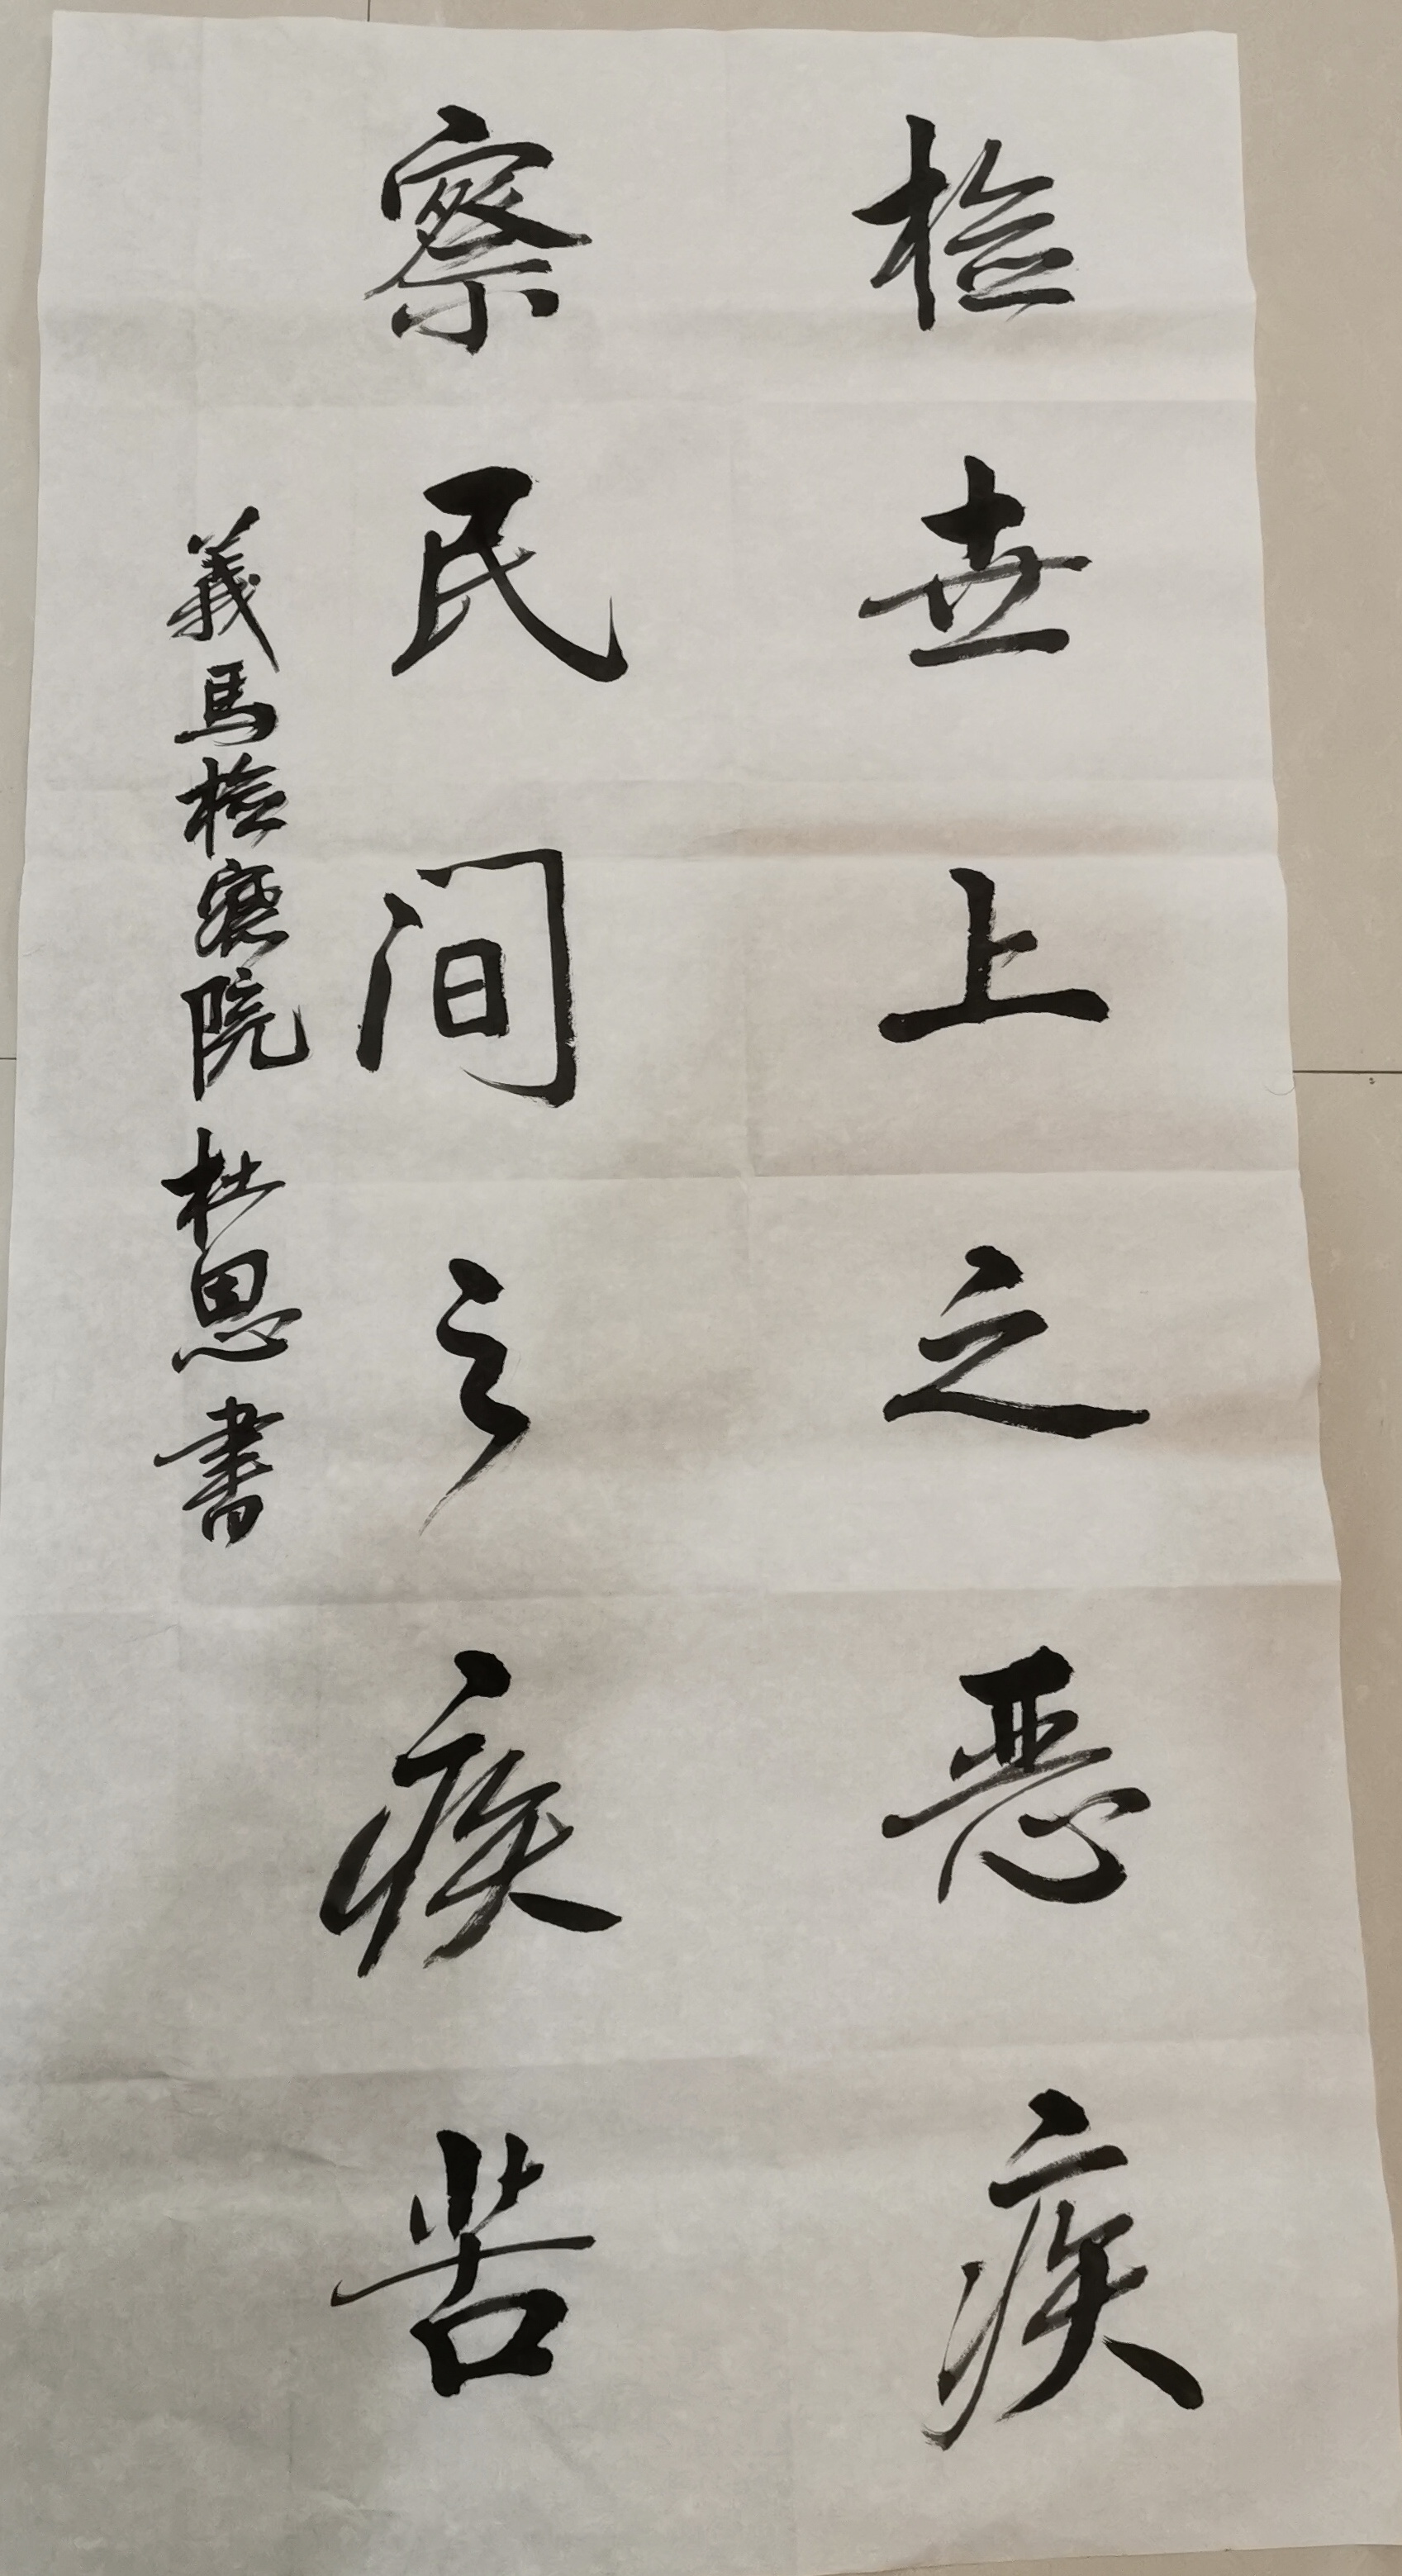 检世上之恶疾
察民间之疾苦
義马检察院 杜思 書